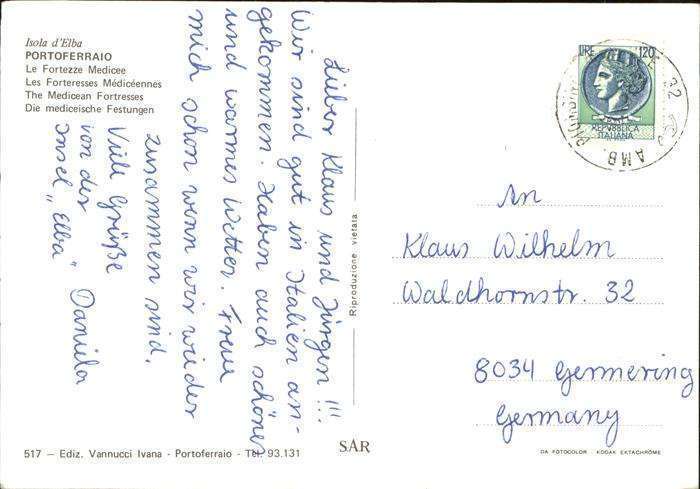 Isola d'Elba
PORTOFERRAIO
Le Fortezze Medicee
Les Forteresses Médicéennes
The Medicean Fortresses
Die mediceische Festungen
Lieber Klaus und Jürgen!!!
Wir sind gut in Italien an-
gekommen. Haben auch schönes
und warmes Wetter. Freue
mich schon wenn wir wieder
zusammen sind.
Viele Grüße
von der
Insel "Elba" Daniela
Riproduzione vietata
LIRE 120
REPVBBLICA
ITALIANA
AMB.
An
Klaus Wilhelm
Waldhornstr. 32
8034 Germering
Germany
517 — Ediz. Vannucci Ivana - Portoferraio - Tel. 93.131
SAR
DA FOTOCOLOR KODAK EKTACHROME